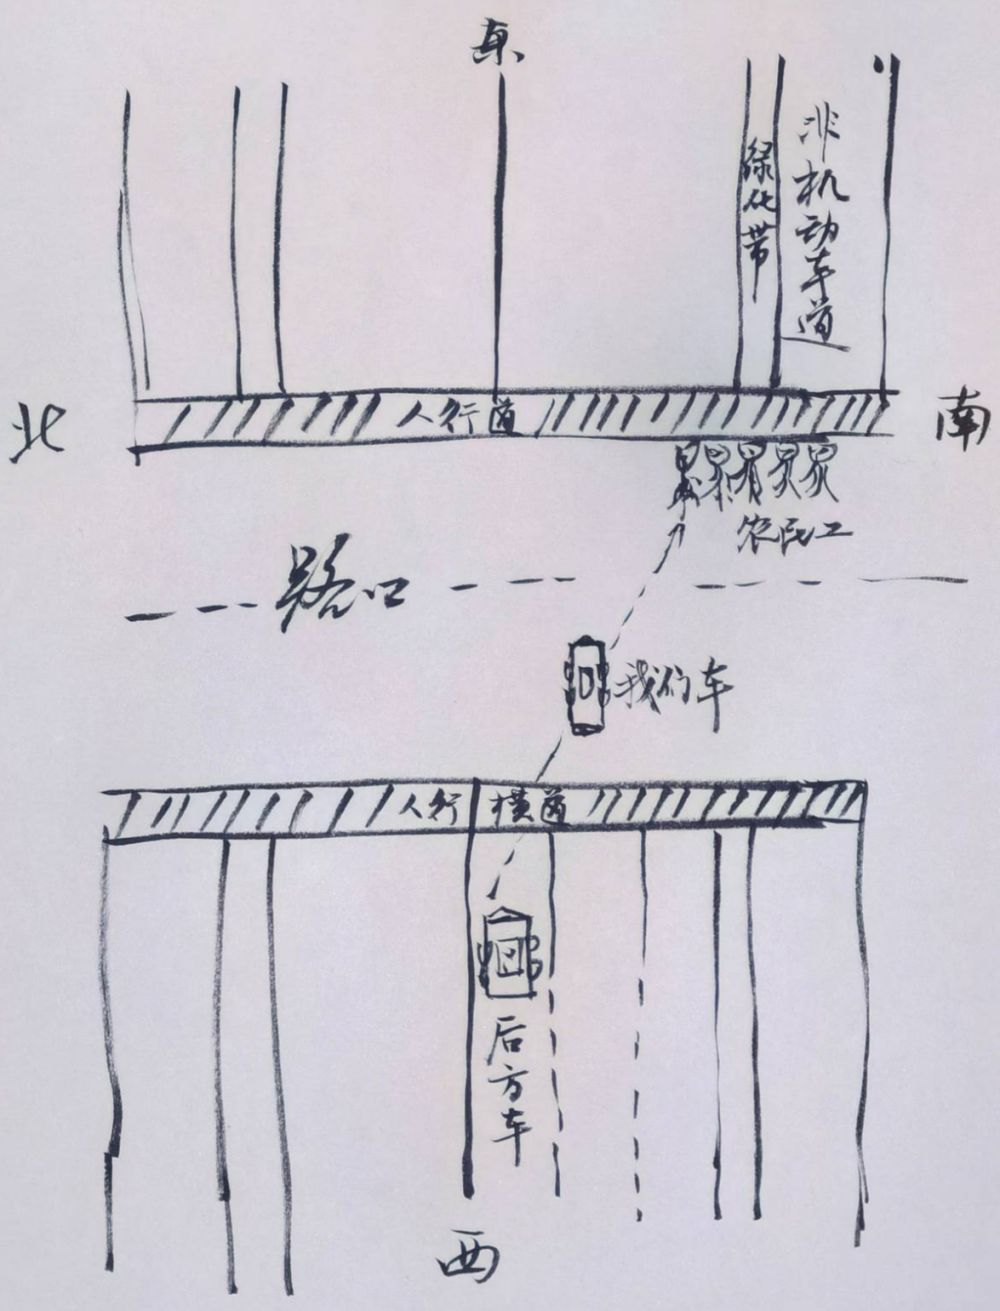 东
绿化带
非机动车道
北
人行道
南
农民工
路口
我们车
人行横道
后方车
西